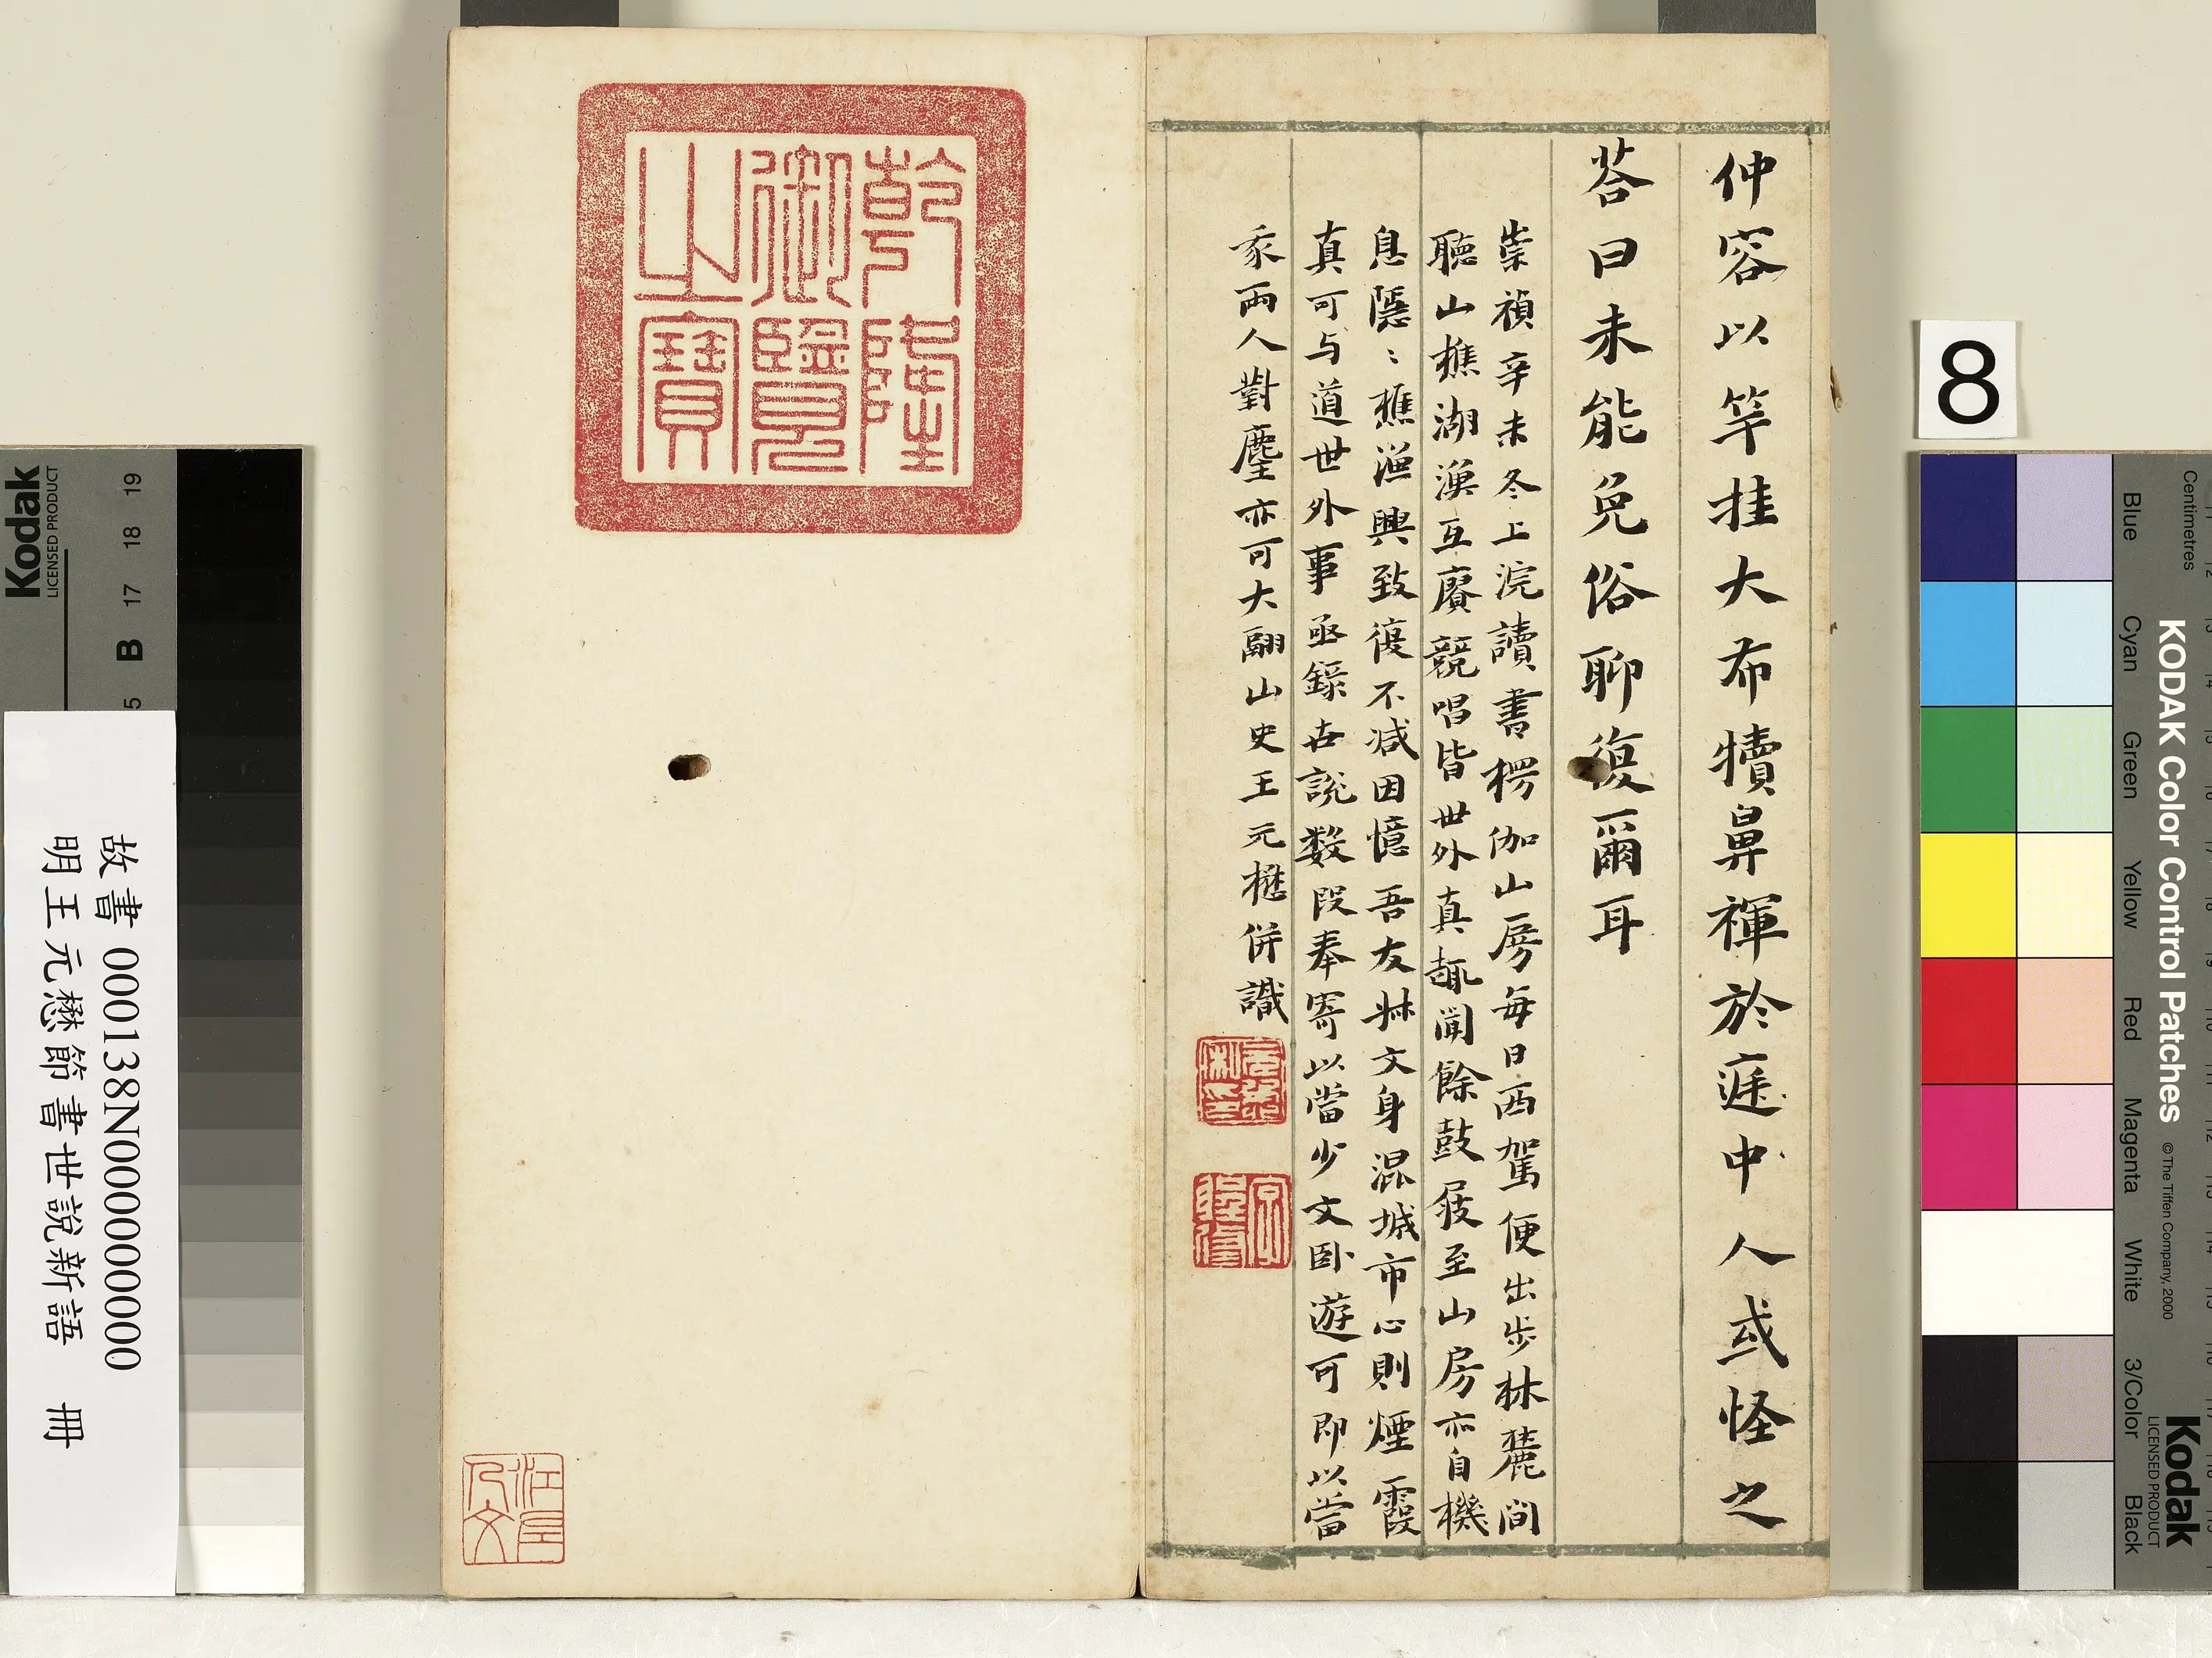 仲容以竿挂大布犢鼻褌於庭中人或怪之
荅曰未能免俗聊復爾耳
崇禎辛未冬上浣讀書楞伽山房每日西駕便出步林麓间
聽山樵湖漁互賡競唱皆世外真韻聞餘鼓屐至山房亦自機
息隱〻樵漁興致復不减因憶吾友牀文身混城市心則煙霞
真可与道世外事亟錄世說数段奉寄以當少文卧遊可即以當
我兩人對麈亦可大翮山史王元懋併識
乾隆
御覽
之寶
8
故書 000138N000000000
明王元懋節書世說新語 冊
Kodak
LICENSED PRODUCT
B 17 18 19
KODAK Color Control Patches
© The Tiffen Company, 2000
Kodak
LICENSED PRODUCT
Centimetres
Blue
Cyan
Green
Yellow
Red
Magenta
White
3/Color
Black